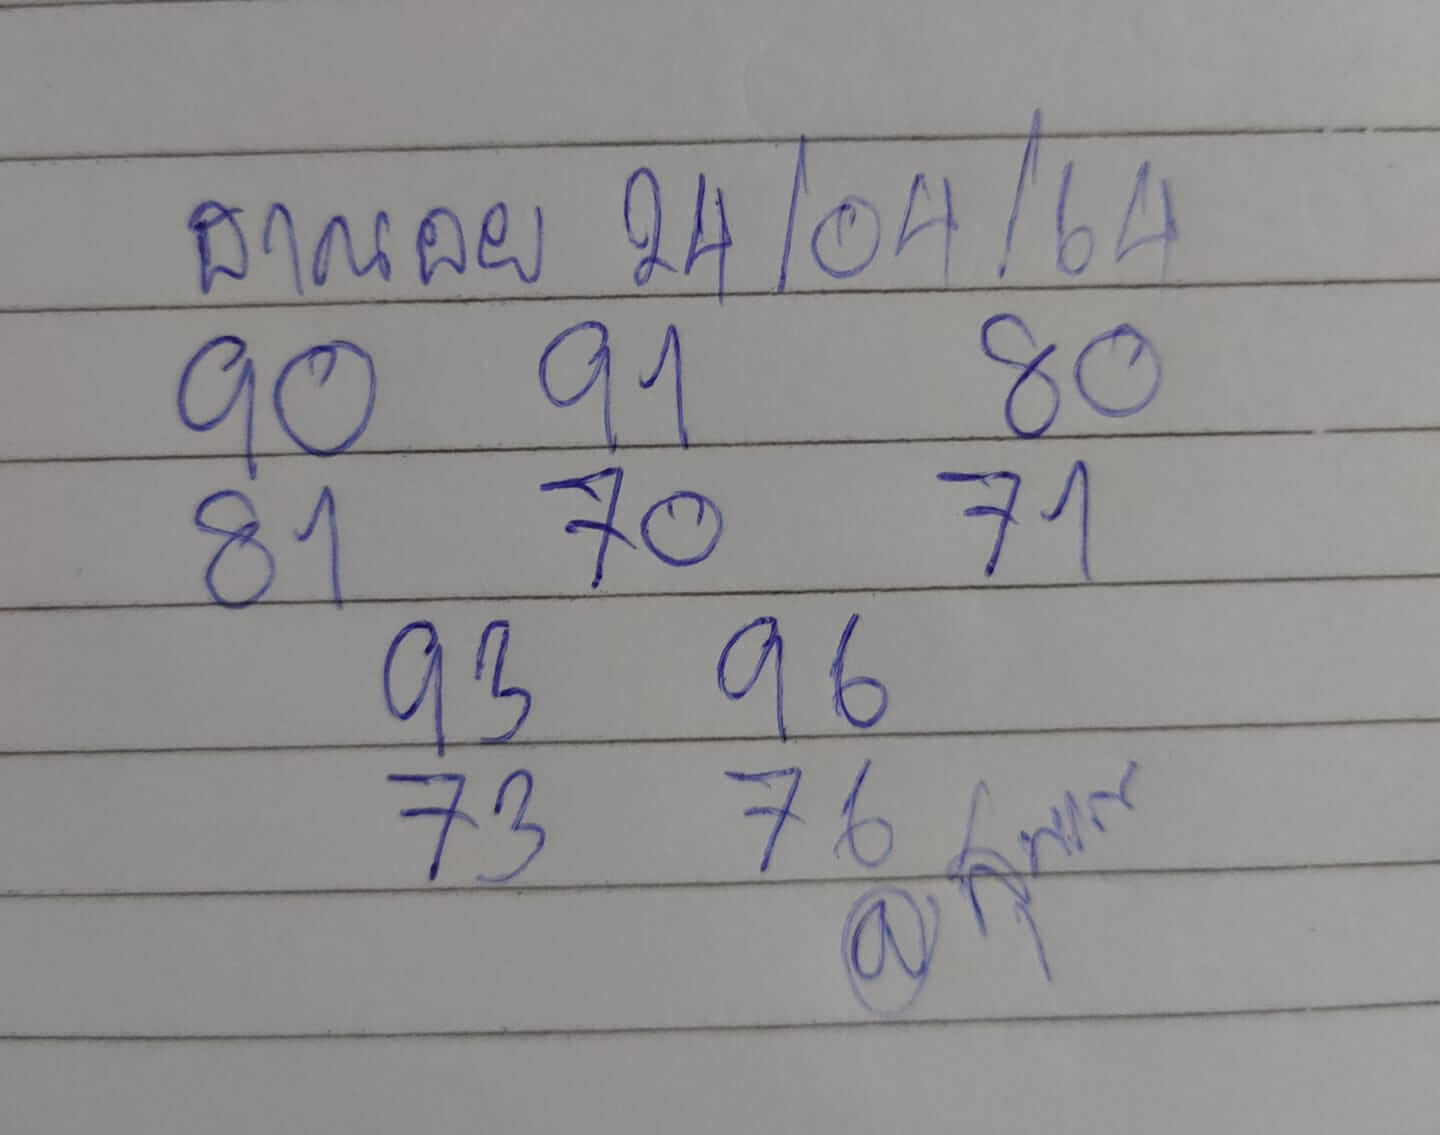 ฮานอย 24/04/64
90 91 80
81 70 71
93 96
73 76